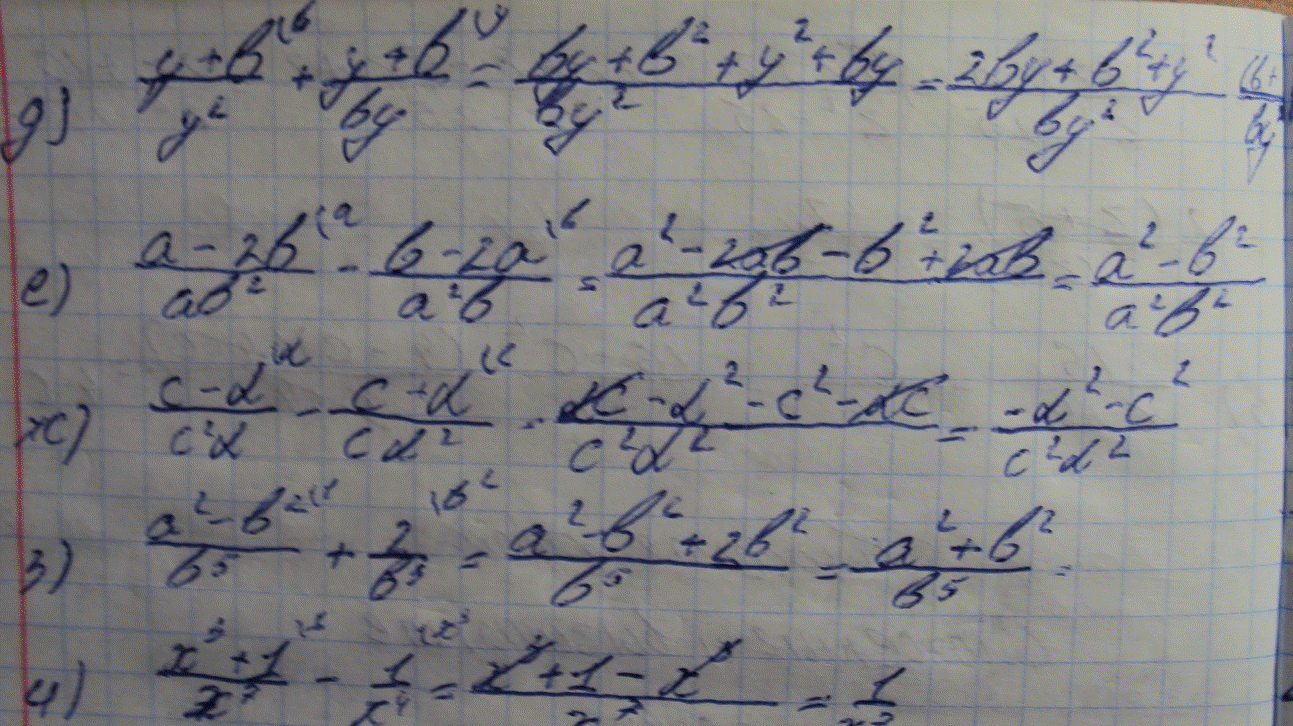 д) (y+b)/y² \b + (y+b)/by \y = (by+b²+y²+by)/by² = (2by+b²+y²)/by² (b+/by
е) (a-2b)/ab² \a - (b-2a)/a²b \b = (a²-2ab-b²+2ab)/a²b² = (a²-b²)/a²b²
ж) (c-d)/c²d \d - (c+d)/cd² \c = (dc-d²-c²-dc)/c²d² = (-d²-c²)/c²d²
з) (a²-b²)/b⁵ \1 + 2/b³ \b² = (a²-b²+2b²)/b⁵ = (a²+b²)/b⁵ =
и) (x³+1)/x⁷ - 1/x⁴ \x³ = (x³+1-x³)/x⁷ = 1/x⁷